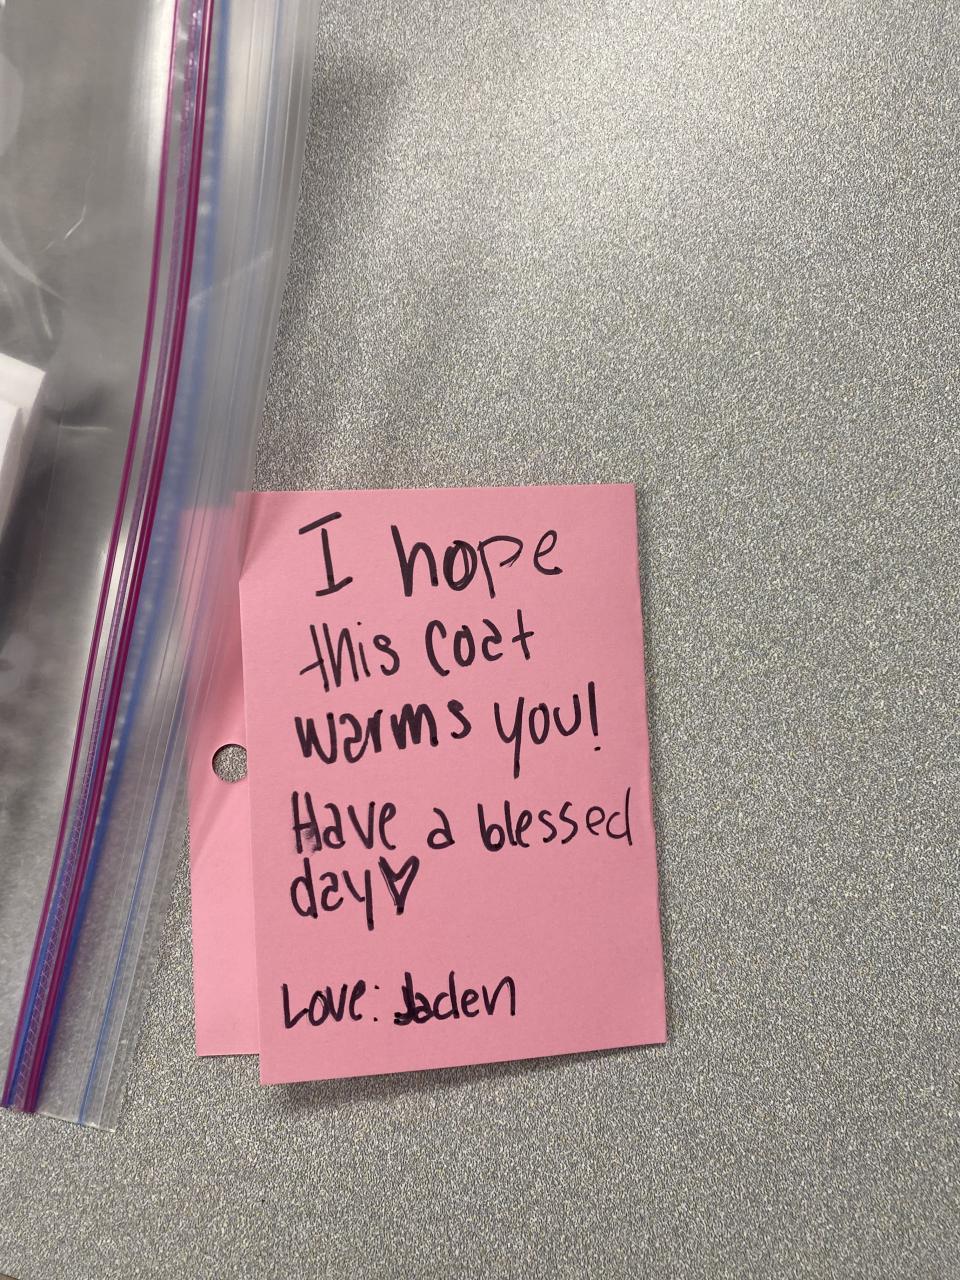 I hope
this coat
warms you!
Have a blessed
day♥
Love: Jaden